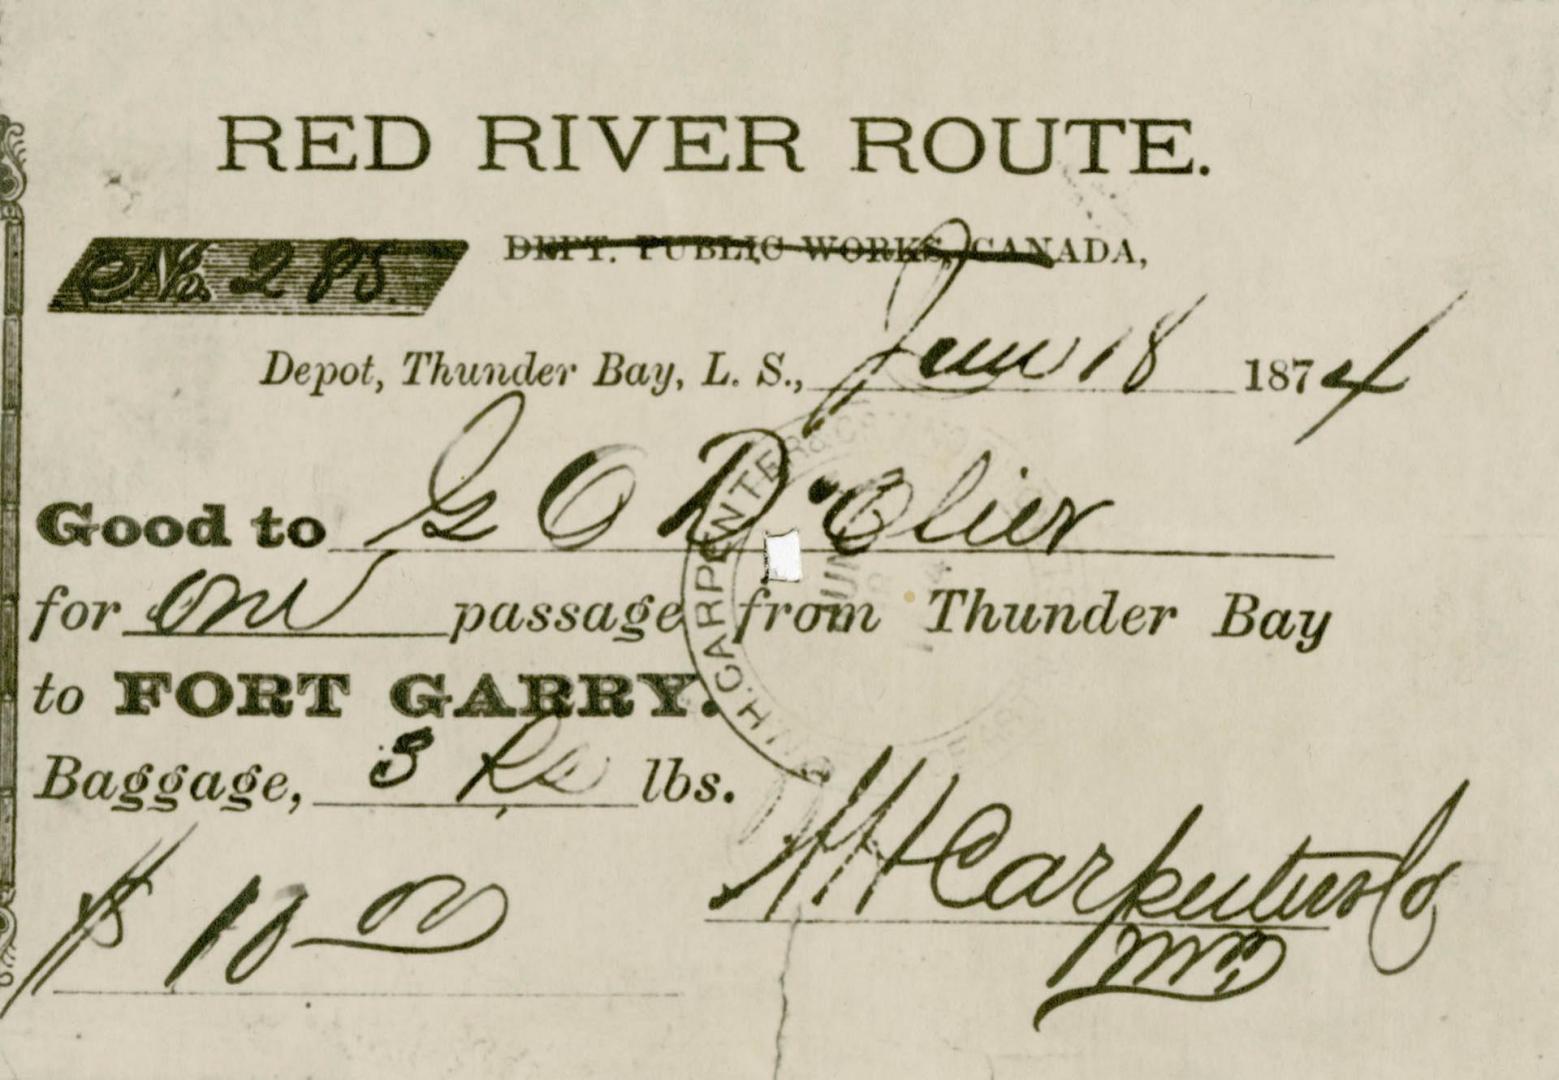 RED RIVER ROUTE.
No. 285
DEPT. PUBLIC WORKS, CANADA,
Depot, Thunder Bay, L. S., June 18 1874
Good to G O D'Olier
for one passage from Thunder Bay
to FORT GARRY.
Baggage, 3 lbs.
$ 10 00
W H Carpenter & Co
W.H. CARPENTER & CO
JUN